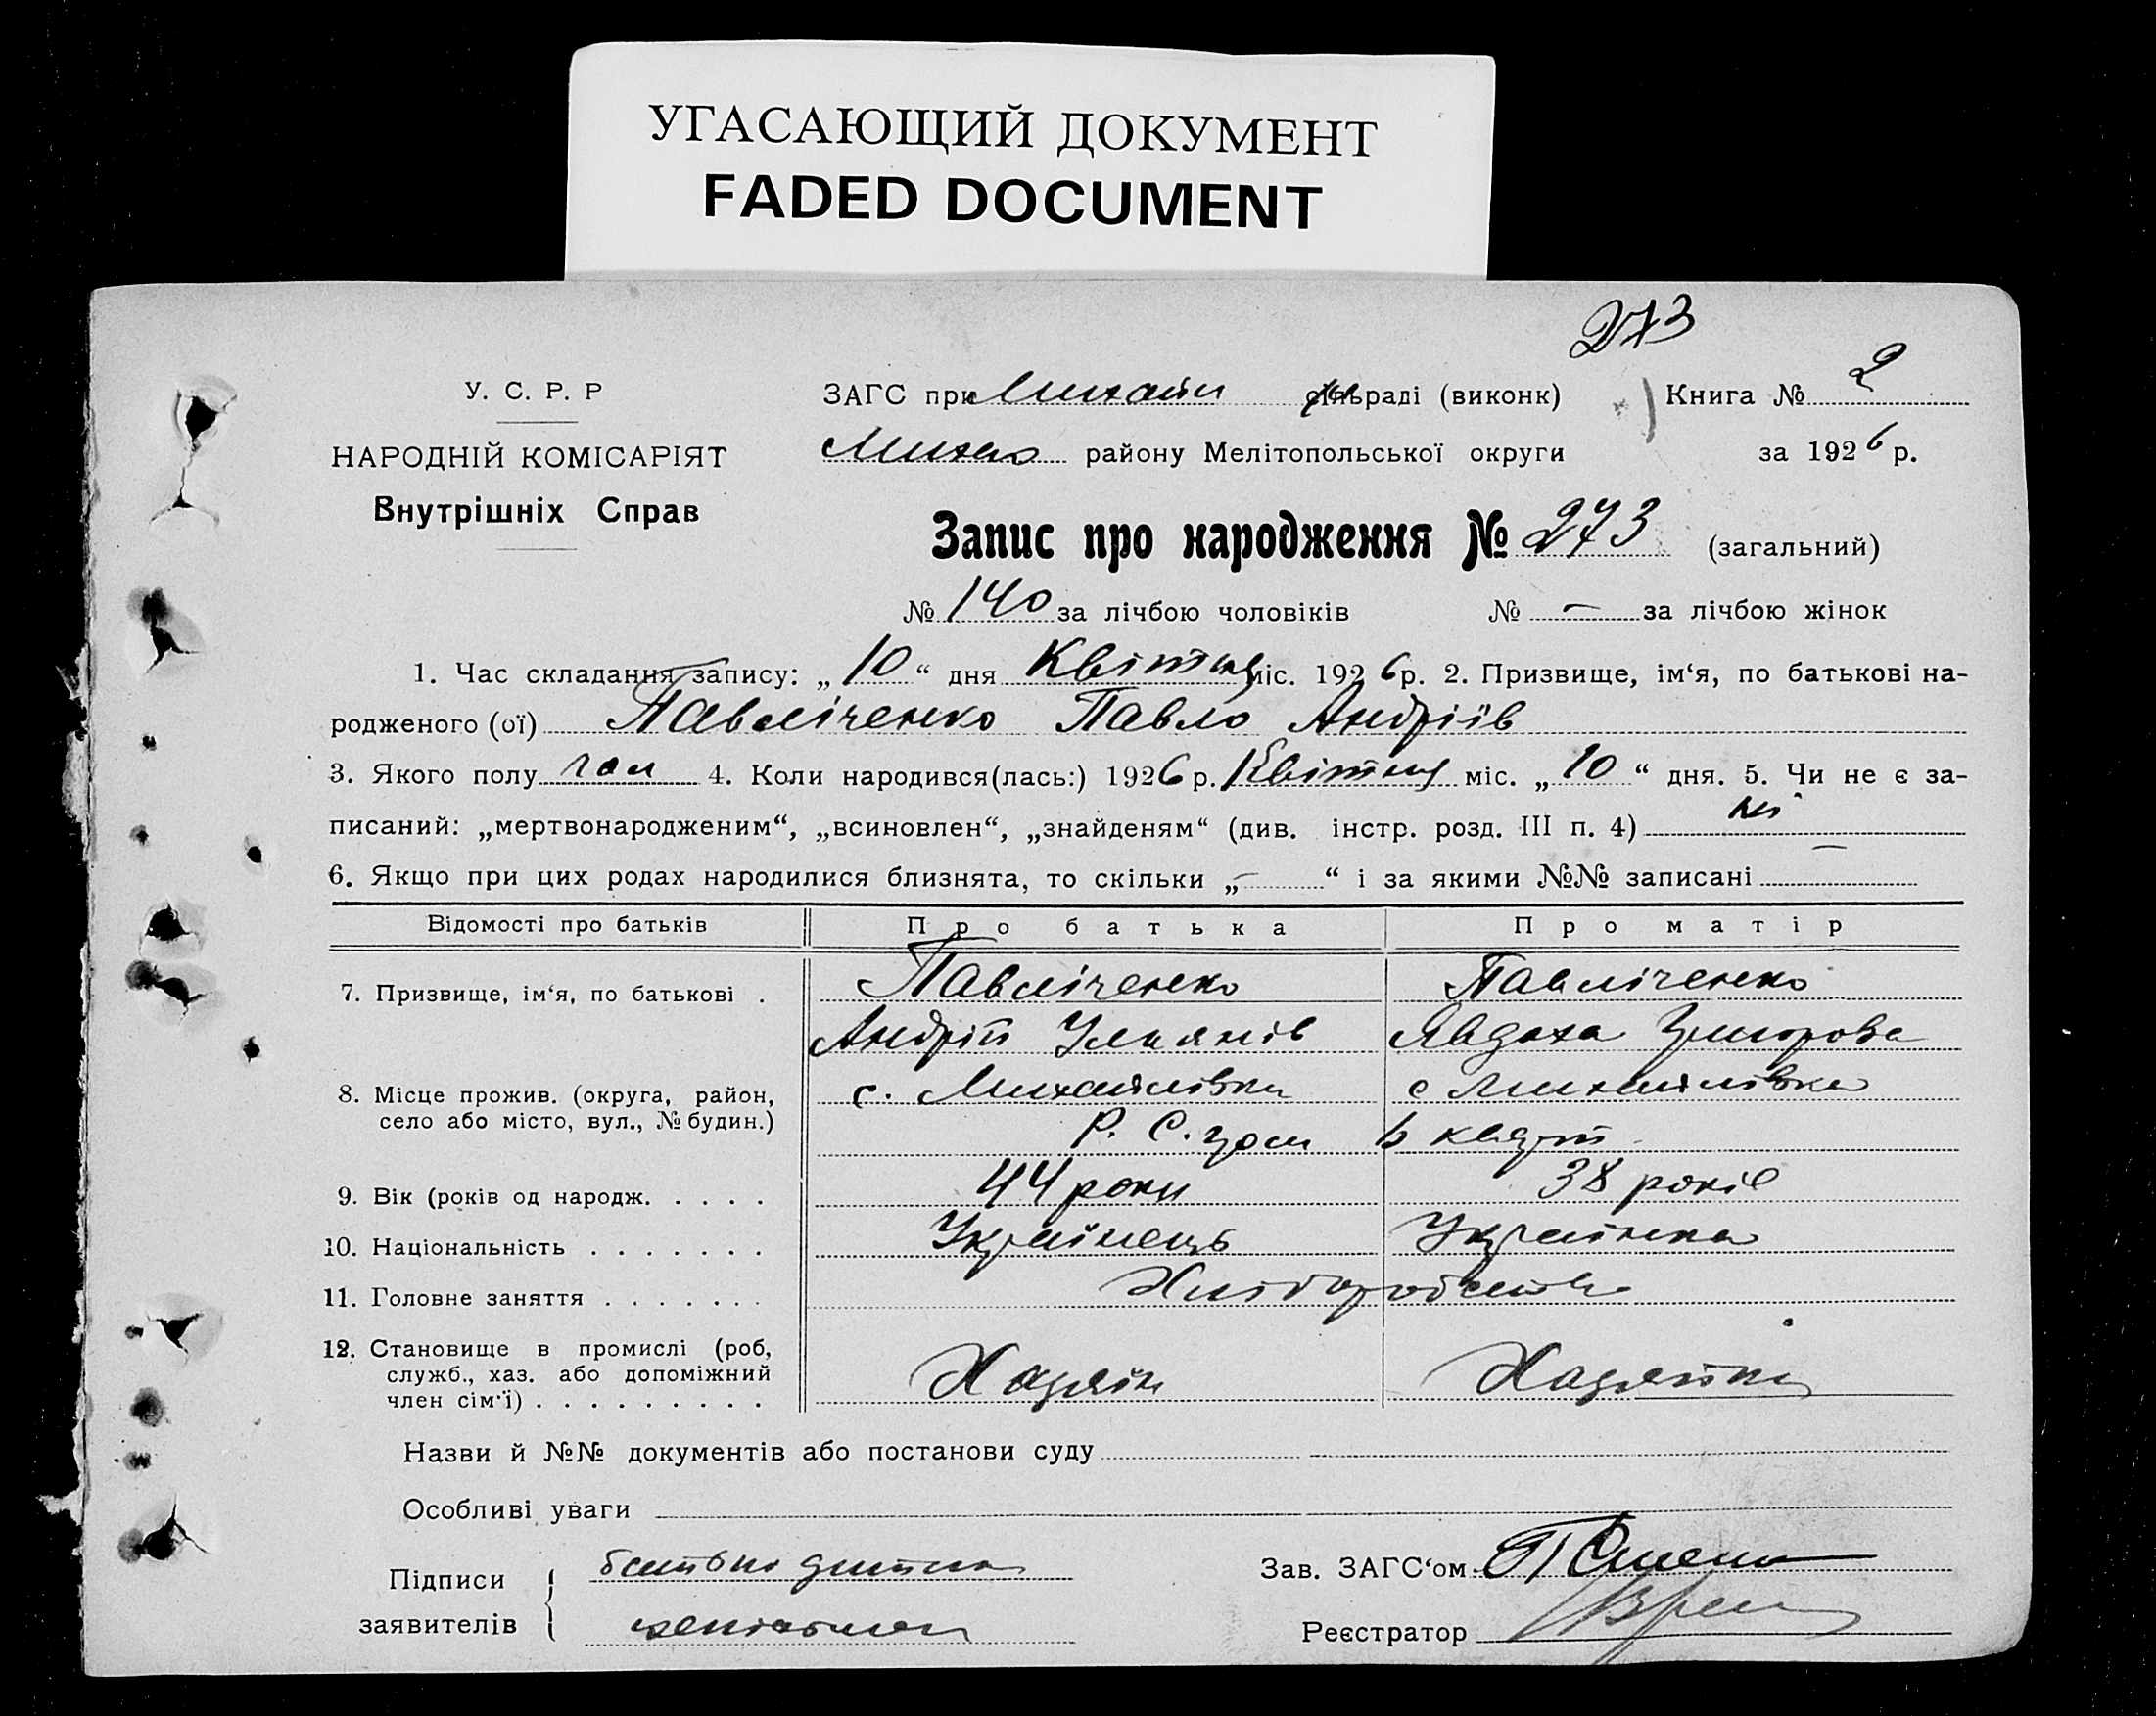 УГАСАЮЩИЙ ДОКУМЕНТ
FADED DOCUMENT
273
У. С. Р. Р
НАРОДНІЙ КОМІСАРІЯТ
Внутрішніх Справ
ЗАГС при Михайл раді (виконк) Книга № 2
Михай району Мелітопольської округи за 1926 р.
Запис про народження № 273 (загальний)
№ 140 за лічбою чоловіків № — за лічбою жінок
1. Час складання запису: „ 10 “ дня Квітня міс. 1926 р. 2. Призвище, ім‘я, по батькові на-
родженого (ої) Павліченко Павло Андріїв
3. Якого полу чол 4. Коли народився(лась:) 1926 р. Квітня міс. „ 10 “ дня. 5. Чи не є за-
писаний: „мертвонародженим“, „всиновлен“, „знайденям“ (див. інстр. розд. III п. 4) ні
6. Якщо при цих родах народилися близнята, то скільки „ — “ і за якими №№ записані —
Відомості про батьків Про батька Про матір
7. Призвище, ім‘я, по батькові . Павліченко Павліченко
Андрій Ульянів Явдоха Григорова
8. Місце прожив. (округа, район, с. Михайлівка с Михайлівка
село або місто, вул., № будин.) Р. С.
9. Вік (років од народж. . . . . 44 роки 38 років
10. Національність . . . . . . . Українець Українка
11. Головне заняття . . . . . . . Хліборобство
12. Становище в промислі (роб, Хазяїн Хазяйка
служб., хаз. або допоміжний
член сім‘ї) . . . . . . . . .
Назви й №№ документів або постанови суду
Особливі уваги
Підписи батько дитини
заявителів
Зав. ЗАГС‘ом
Реєстратор